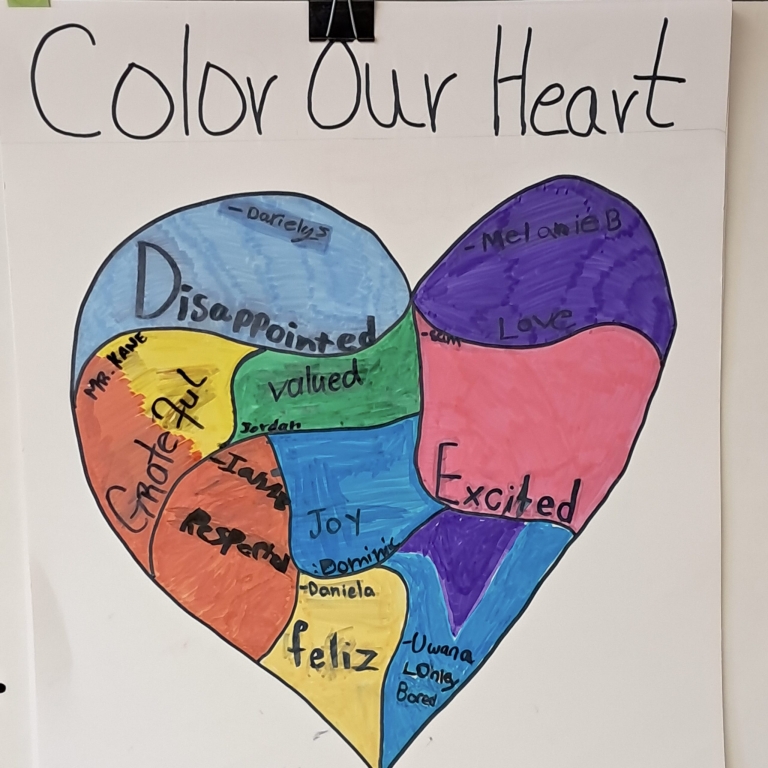 Color Our Heart
-Darielys
Disappointed
-Melanie B
Love
MR. KANE
Grateful
valued
Jordan
-sam
Excited
Respected
JOY
:Dominic
-Daniela
feliz
-Uwana
LOnley
Bored